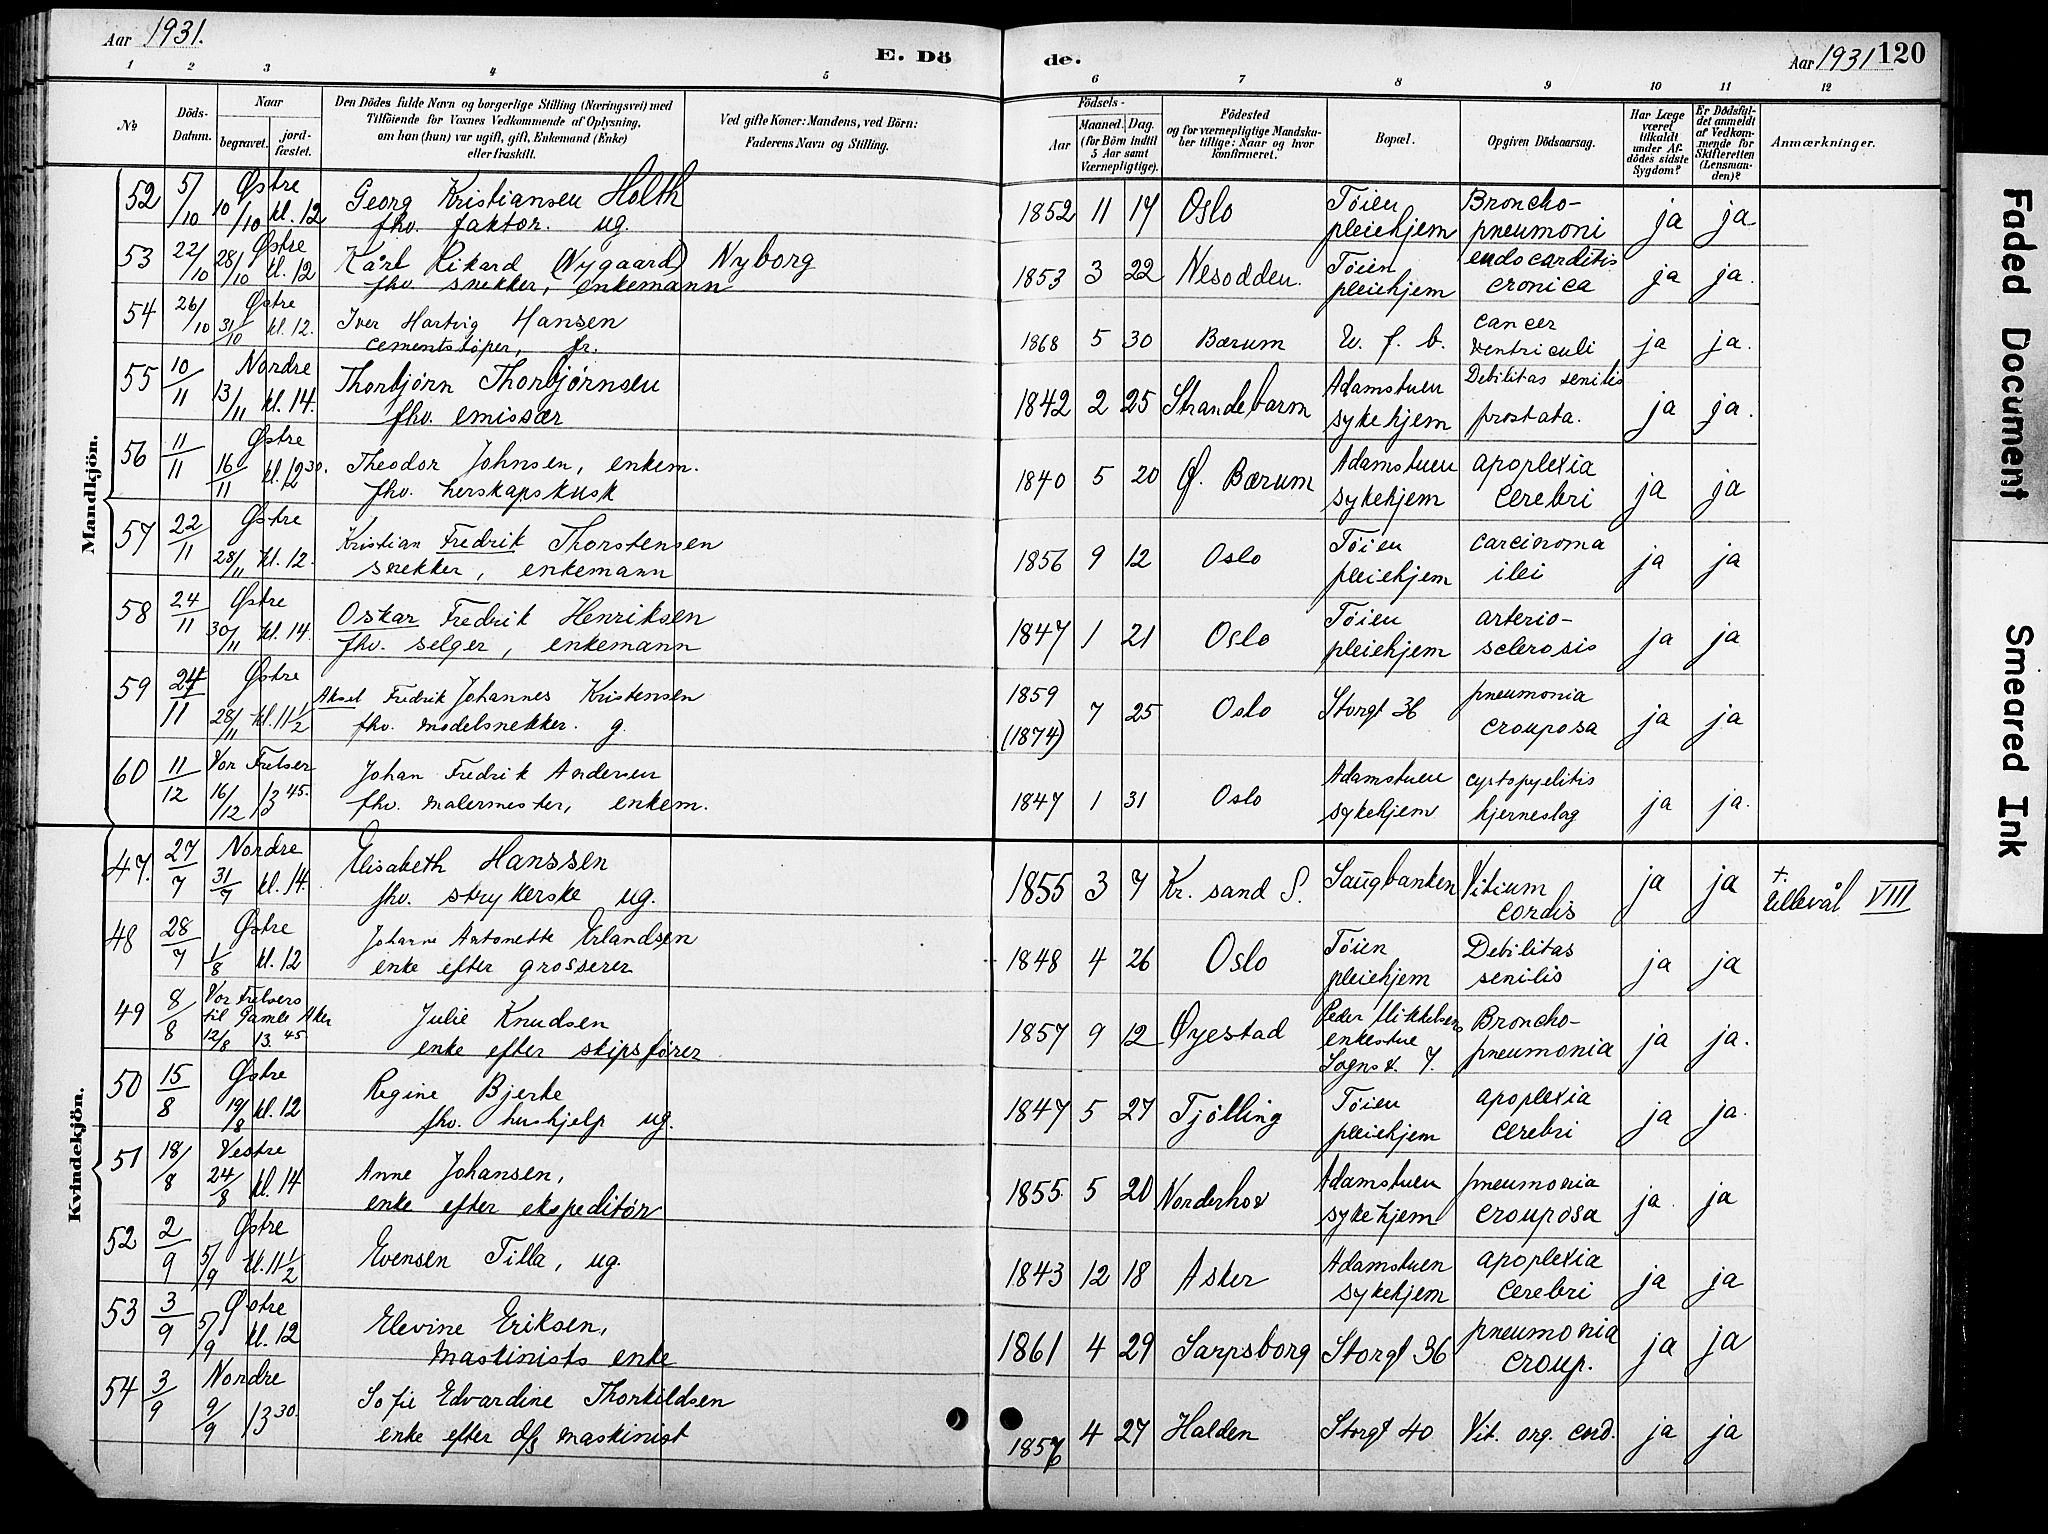 Aar 1931.
E. Dö
de.
Aar 1931 120
1 2 3 4 5 6 7 8 9 10 11 12
№
Döds-
Datum.
Naar
begravet.
jord-
fæstet.
Den Dödes fulde Navn og borgerlige Stilling (Næringsvei) med
Tilföiende for Voxnes Vedkommende af Oplysning,
om han (hun) var ugift, gift, Enkemand (Enke)
eller fraskilt.
Ved gifte Koner: Mandens, ved Börn:
Faderens Navn og Stilling.
Födsels-
Aar
Maaned. Dag.
(for Börn indtil
5 Aar samt
Værnepligtige).
Födested
og for værnepligtige Mandska-
ber tillige: Naar og hvor
konfirmeret.
Bopæl.
Opgiven Dödsaarsag.
Har Læge
været
tilkaldt
under Af-
dödes sidste
Sygdom?
Er Dödsfal-
det anmeldt
af Vedkom-
mende for
Skifteretten
(Lensman-
den)?
Anmærkninger.
Mandkjön.
52 5/10 Østre 10/10 kl. 12 Georg Kristiansen Holth 1852 11 17 Oslo Tøien Broncho- ja ja
fhv. faktor. ug. pleiehjem pneumoni
53 22/10 Østre 28/10 kl. 12 Karl Rikard (Nygaard) Nyborg 1853 3 22 Nesodden. Tøien endocarditis ja ja.
fhv. snekker, enkemann pleiehjem cronica
54 26/10 Østre 31/10 kl. 12. Iver Hartvig Hansen 1868 5 30 Bærum U. f. b. cancer ja ja.
cementstøper, fr. ventriculi
55 10/11 Nordre 13/11 kl. 14. Thorbjørn Thorbjørnsen 1842 2 25 Strandebarm Adamstuen Debilitas senilis ja ja.
fhv. emissær sykehjem prostata.
56 11/11 Østre 16/11 kl. 12 30. Theodor Johnsen, enkem. 1840 5 20 Ø. Bærum Adamstuen apoplexia ja ja
fhv. herskapskusk sykehjem cerebri
57 22/11 Østre 28/11 kl. 12. Kristian Fredrik Thorstensen 1856 9 12 Oslo Tøien carcinoma ja ja
snekker, enkemann pleiehjem ilei
58 24/11 Østre 30/11 kl. 14. Oskar Fredrik Henriksen 1847 1 21 Oslo Tøien arterio- ja ja
fhv. selger, enkemann pleiehjem sclerosis
59 24/11 Østre 28/11 kl. 11 1/2 Aksel Fredrik Johannes Kristensen 1859 (1874) 7 25 Oslo Storgt 36 pneumonia ja ja
fhv. modelsnekker. g. crouposa
60 11/12 Vor Frelser 16/12 13 45. Johan Fredrik Andersen 1847 1 31 Oslo Adamstuen cystopyelitis ja ja.
fhv. malermester, enkem. sykehjem hjerneslag
Kvindekjön.
47. 27/7 Nordre 31/7 kl. 14. Elisabeth Hanssen 1855 3 7 Kr. sand S. Saugbanken Vitium ja ja +. Ullevål VIII
fhv. strykerske ug. cordis
48 28/7 Østre 1/8 kl. 12 Johanne Antonette Erlandsen 1848 4 26 Oslo Tøien Debilitas ja ja
enke efter grosserer pleiehjem senilis
49 8/8 Vor Frelsers til Gamle Aker 12/8 13.45. Julie Knudsen 1857 9 12 Øyestad Peder Mikkelsens Broncho- ja ja.
enke efter skipsfører enkestue pneumonia
Sognsv. 7.
50 15/8 Østre 19/8 kl. 12 Regine Bjerke 1847 5 27 Tjølling Tøien apoplexia ja ja.
fhv. hushjelp ug. pleiehjem cerebri
51 18/8 Vestre 24/8 kl. 14 Anne Johansen, 1855 5 20 Norderhov Adamstuen pneumonia ja. ja
enke efter ekspeditør sykehjem crouposa
52 2/9 Østre 5/9 kl. 11 1/2 Evensen Tilla, ug. 1843 12 18 Asker Adamstuen apoplexia ja ja
sykehjem cerebri
53 3/9 Østre 5/9 kl. 12 Elevine Eriksen, 1861 4 29 Sarpsborg Storgt 36 pneumonia ja ja
maskinists enke croup.
54 3/9 Nordre 9/9 13 30. Sofie Edvardine Thorkildsen 4 27 Halden Storgt 40 Vit. org. cord. ja ja
enke efter d/s maskinist
Faded Document
Smeared Ink